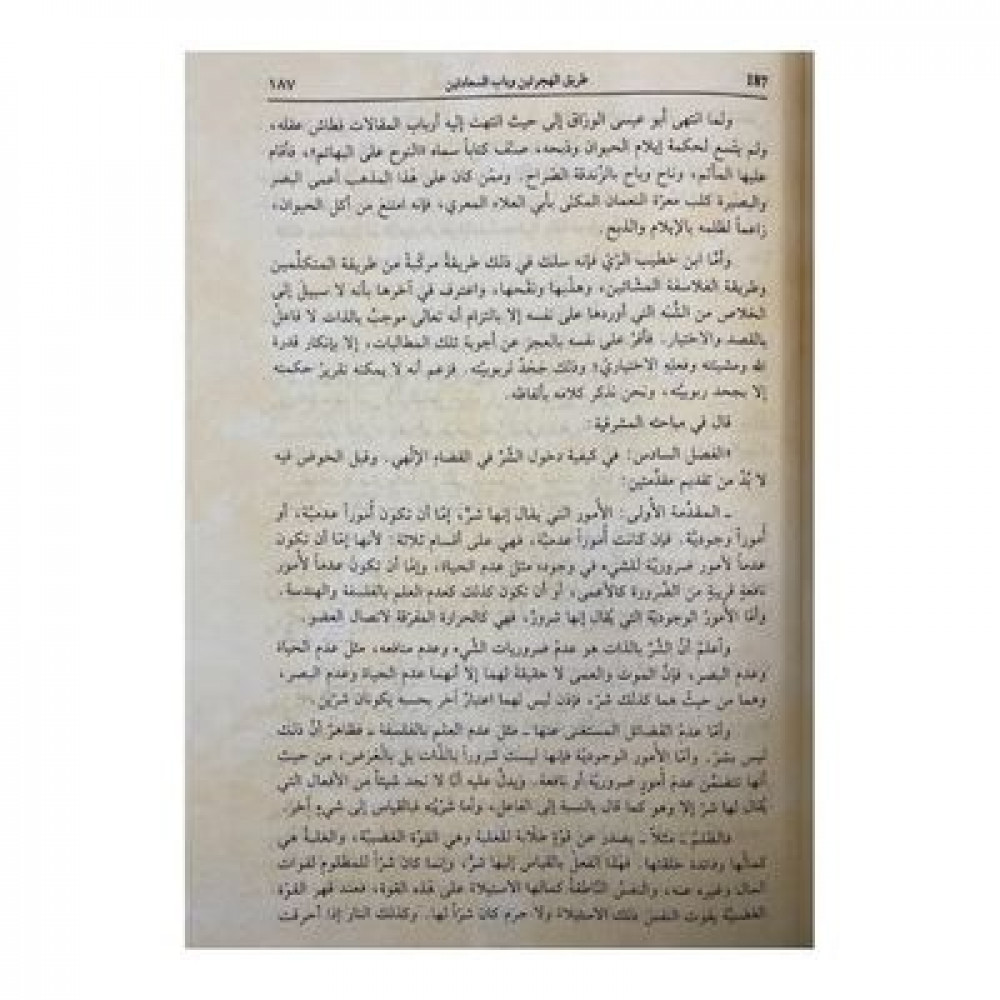 187 طريق الهجرتين وباب السعادتين ١٨٧
ولما انتهى أبو عيسى الوراق إلى حيث انتهت إليه أرباب المقالات فطاش عقله،
ولم يتسع لحكمة إيلام الحيوان وذبحه، صنّف كتاباً سماه «النوح على البهائم»، فأقام
عليها المآتم، وناح وباح بالزندقة الصُّراح. وممّن كان على هذا المذهب أعمى البصر
والبصيرة كلب معرّة النعمان المكنّى بأبي العلاء المعري، فإنه امتنع من أكل الحيوان،
زاعماً لظلمه بالإيلام والذبح.
وأمّا ابن خطيب الرّيّ فإنه سلك في ذلك طريقةً مركّبةً من طريقة المتكلّمين
وطريقة الفلاسفة المشّائين، وهذّبها ونقّحها، واعترف في آخرها بأنه لا سبيل إلى
الخلاص من الشُّبه التي أوردها على نفسه إلا بالتزام أنه تعالى موجبٌ بالذات لا فاعلٌ
بالقصد والاختيار. فأقرّ على نفسه بالعجز عن أجوبة تلك المطالبات، إلا بإنكار قدرة
الله ومشيئته وفعله الاختياريّ؛ وذلك جَحْدٌ لربوبيّته. فزعم أنه لا يمكنه تقريرُ حكمته
إلا بجحد ربوبيّته، ونحن نذكر كلامه بألفاظه.
قال في مباحثه المشرقية:
«الفصل السادس: في كيفية دخول الشّرّ في القضاء الإلٰهي. وقبل الخوض فيه
لا بُدّ من تقديم مقدّمتين:
ـ المقدّمة الأولى: الأمور التي يقال إنها شرٌّ، إمّا أن تكون أموراً عدميّة، أو
أموراً وجوديّة. فإن كانت أموراً عدميّة، فهي على أقسام ثلاثة: لأنها إمّا أن تكون
عدماً لأمور ضروريّة للشيء في وجوده مثل عدم الحياة، وإمّا أن تكون عدماً لأمور
نافعةٍ قريبةٍ من الضّرورة كالأعمى، أو أن تكون كذلك كعدم العلم بالفلسفة والهندسة.
وأمّا الأمورُ الوجوديّة التي يُقال إنها شرورٌ، فهي كالحرارة المفرّقة لاتصال العضو.
وأعلمْ أنّ الشّرّ بالذات هو عدمُ ضروريات الشّيء وعدم منافعه، مثل عدم الحياة
وعدم البصر، فإنّ الموت والعمى لا حقيقةَ لهما إلا أنهما عدم الحياة وعدم البصر،
وهما من حيثُ هما كذلك شرّ، فإذن ليس لهما اعتبارٌ آخر بحسبه يكونان شرّين.
وأمّا عدمُ الفضائل المستغنى عنها ـ مثل عدم العلم بالفلسفة ـ فظاهرٌ أنّ ذلك
ليس بشرّ. وأمّا الأمور الوجوديّة فإنها ليست شروراً بالذّات بل بالعَرَض، من حيث
أنها تتضمّن عدمَ أمورٍ ضروريّة أو نافعة. ويدلّ عليه أنّا لا نجد شيئاً من الأفعال التي
يُقال لها شرّ إلا وهو كما قال بالنسبة إلى الفاعل، وأما شرّيّته فبالقياس إلى شيءٍ آخر.
فالظّلمُ ـ مثلاً ـ يصدر عن قوّةٍ طلّابة للغلبة وهي القوّة الغضبيّة، والغلبةُ هي
كمالُها وفائدة خلقتها. فهذا الفعلُ بالقياس إليها شرٌّ، وإنما كان شرّاً للمظلوم لفوات
المال وغيره عنه، والنفسُ النّاطقةُ كمالُها الاستيلاءُ على هذه القوة، فعند قهر القوّة
الغضبيّة يفوت النفسَ ذلك الاستيلاءُ ولا جرم كان شرّاً لها. وكذلك النار إذا أحرقت